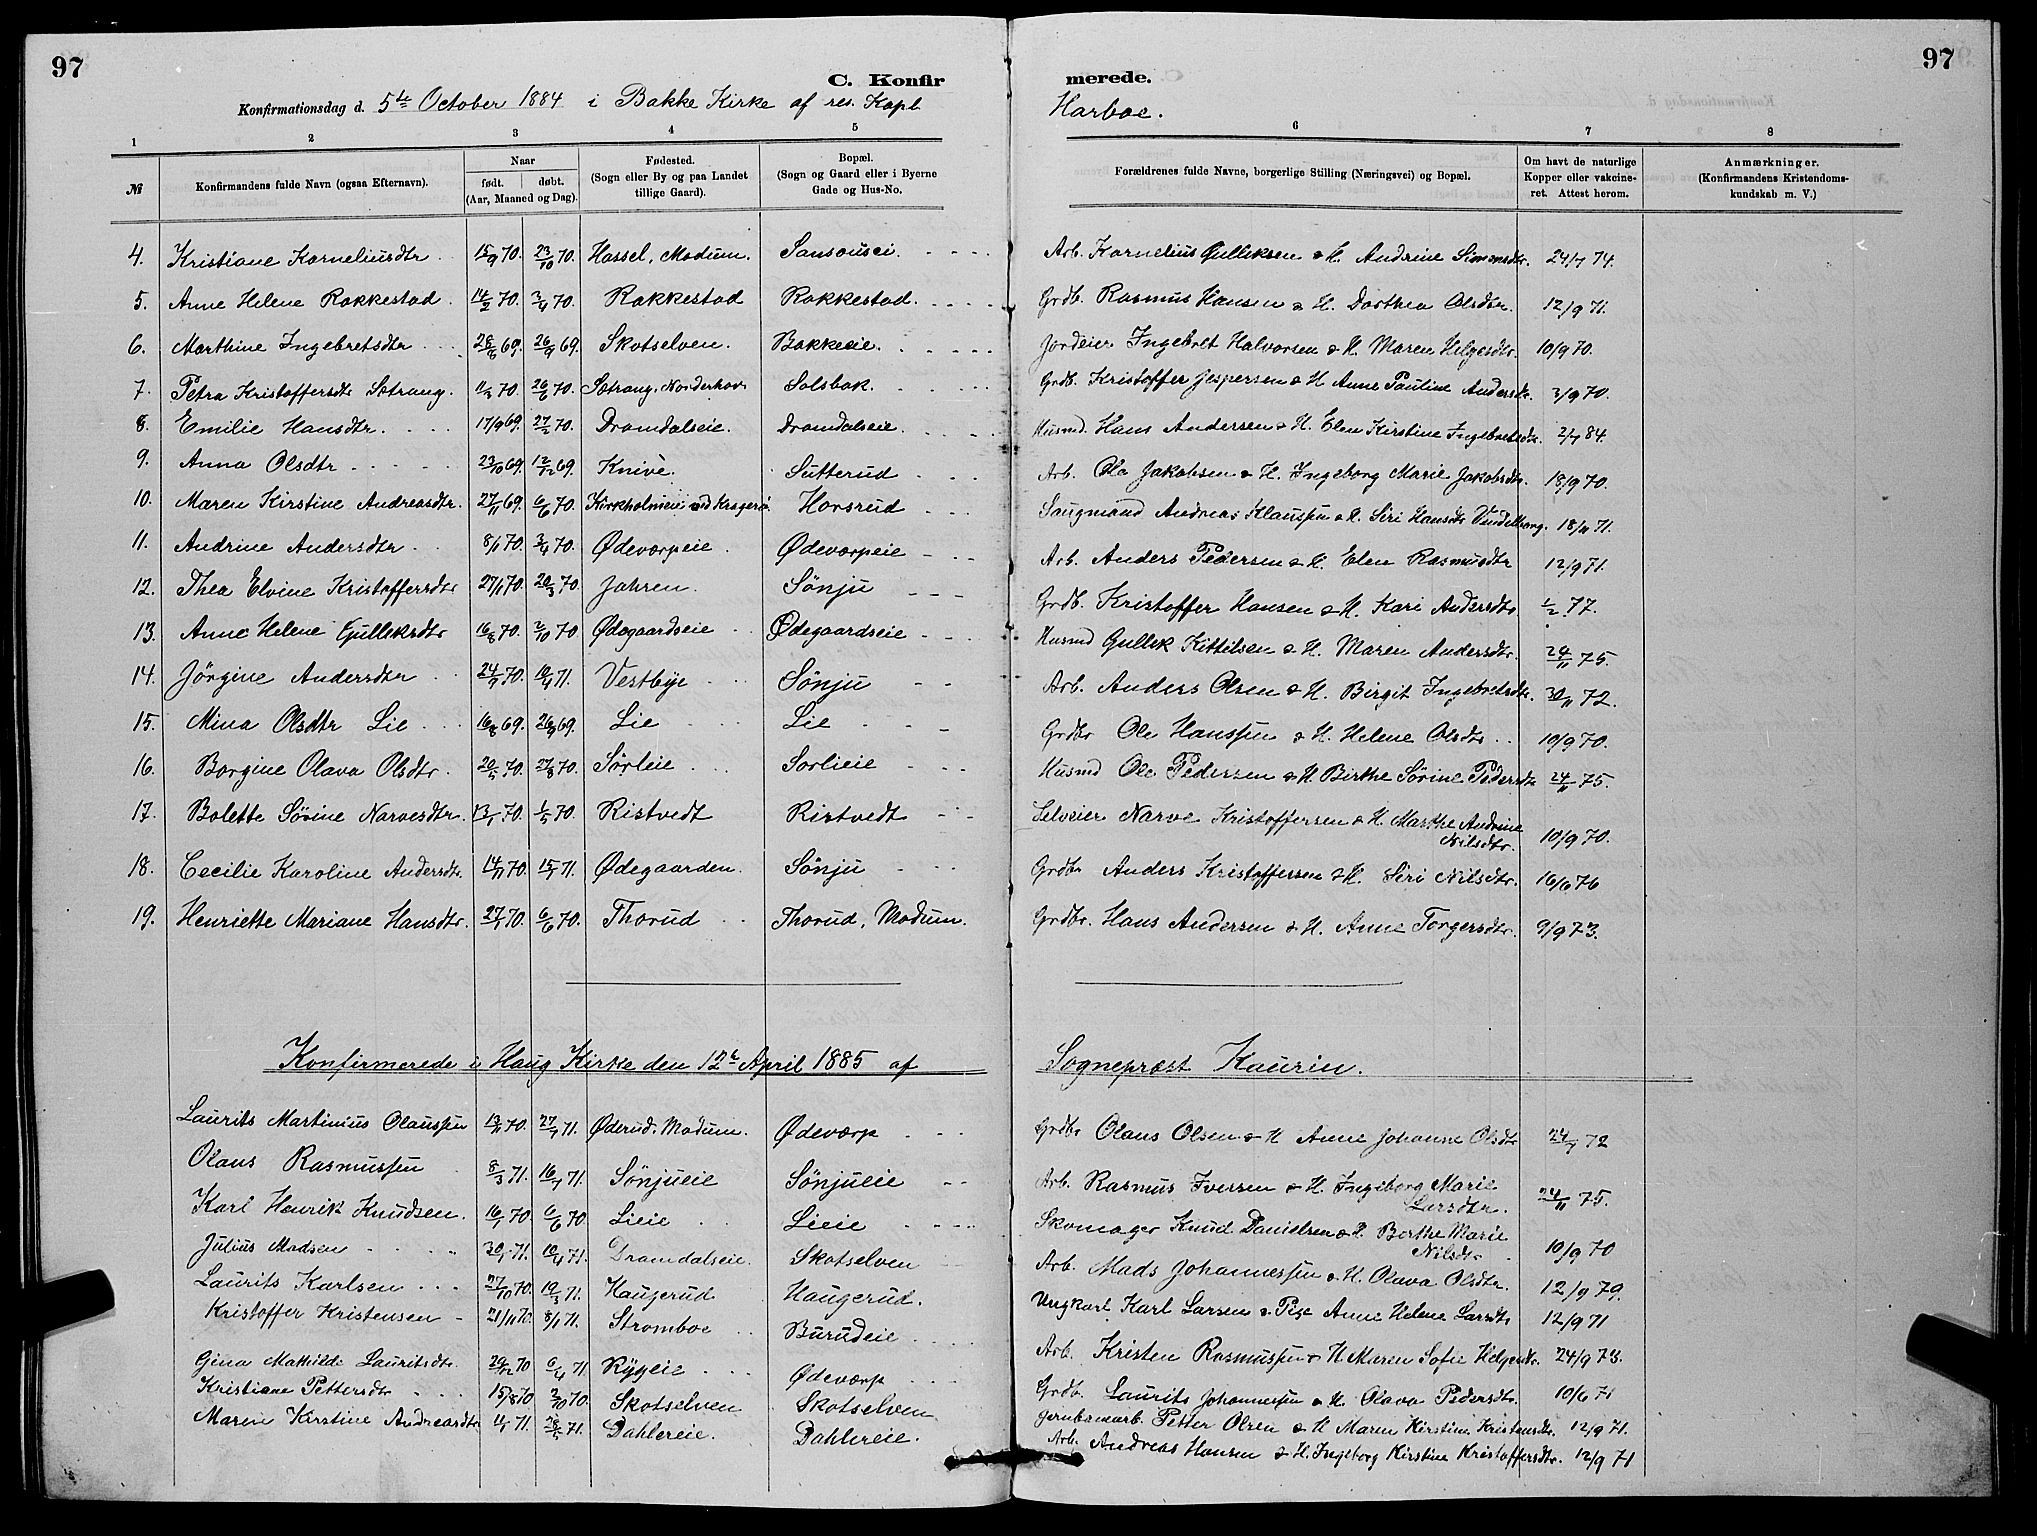 97
C. Konfir
Konfirmationsdag d. 5te October 1884 i Bakke Kirke af res. Kapl
1 2 3 4 5
№ Konfirmandens fulde Navn (ogsaa Efternavn).
Naar
født. døbt.
(Aar, Maaned og Dag).
Fødested.
(Sogn eller By og paa Landet
tillige Gaard).
Bopæl.
(Sogn og Gaard eller i Byerne
Gade og Hus-No.
4. Kristiane Korneliusdtr 15/9 70. 23/10 70. Hassel, Modum. Sansousei.
5. Anne Helene Rakkestad 14/2 70. 3/4 70. Rakkestad Rakkestad.
6. Marthine Ingebretsdtr 28/8 69. 26/9 69. Skotselven. Bakkeeie.
7. Petra Kristoffersdtr Sætrang. 11/3 70. 26/6 70. Sætrang, Norderhov Solsbak.
8. Emilie Hansdtr. 17/9 69. 27/2 70. Dramdalseie. Dramdalseie.
9. Anna Olsdtr 23/10 69. 12/12 69. Knive. Sutterud
10. Maren Kirstine Andreasdtr. 27/11 69. 6/6 70. Kirkholmen ved Kragerø. Horsrud
11. Andrine Andersdtr 8/1 70. 3/4 70. Ødeværpeie. Ødeværpeie
12. Thea Elvine Kristoffersdtr 27/1 70. 20/3 70. Jahren. Sönju
13. Anne Helene Gulleksdtr 16/8 70. 2/10 70 Ødegaardseie Ødegaardseie
14. Jörgine Andersdtr 24/9 70. 10/4 71. Vestbye Sönju
15. Mina Olsdtr Lie 16/8 69. 26/9 69. Lie Lie
16. Borgine Olava Olsdtr. 20/5 70. 27/8 70. Sörlieie Sorlieie
17. Bolette Sörine Narvesdtr. 13/1 70. 1/5 70. Ristvedt Ristvedt
18. Cecilie Karoline Andersdtr. 14/11 70. 15/1 71. Ødegaarden. Sönju
19. Henriette Mariane Hansdtr. 27/1 70. 6/6 70. Thorud Thorud, Modum.
Konfirmerede i Haug Kirke den 12te April 1885 af
Laurits Martinius Olaussen 13/11 70. 27/1 71. Øderud. Modum. Ødeværp
Olaus Rasmussen 8/3 71. 16/4 71. Sönjueie Sönjueie
Karl Henrik Knudsen. 16/1 70 6/6 70. Lieie Lieie
Julius Madsen 30/1 71. 10/4 71. Dramdalseie. Skotselven
Laurits Karlsen 27/10 70. 19/3 71. Haugerud Haugerud.
Kristoffer Kristensen 21/11 70. 8/1 71. Stromboe Burudeie
Gina Mathilde Lauritsdtr. 29/12 70 6/4 71 Rygeie Ødeværp
Kristiane Pettersdtr 15/8 70 2/10 70. Skotselven Skotselven
Maren Kirstine Andreasdtr 4/1 71. 28/5 71. Dahlereie. Dahlereie.
97
merede.
Harboe.
6 7 8
Forældrenes fulde Navne, borgerlige Stilling (Næringsvei) og Bopæl.
Om havt de naturlige
Kopper eller vakcine-
ret. Attest herom.
Anmærkninger.
(Konfirmandens Kristendoms-
kundskab m. V.)
Arb. Kornelius Gulliksen & H. Andrine Simensdtr. 24/7 74.
Grdb. Rasmus Hansen & H. Dorthea Olsdtr. 12/9 71.
Jordeier Ingebret Halvorsen & H. Maren Helgesdtr. 10/9 70.
Grdb. Kristoffer Jespersen & H Anne Pauline Andersdtr. 3/9 70.
Husmd. Hans Andersen & H. Elen Kirstine Ingebretsdtr. 2/7 84.
Arb. Ole Jakobsen & H. Ingeborg Marie Jakobsdtr. 18/9 70.
Saugmand Andreas Klaussen & H. Siri Hansdtr 18/11 71.
Arb. Anders Pedersen & H. Elen Rasmusdtr 12/9 71.
Grdb. Kristoffer Hansen & H. Kari Andersdtr 1/2 77.
Husmd Gullek Kittilsen & H. Maren Andersdtr. 24/11 75.
Arb. Anders Olsen & H. Birgit Ingebretsdtr. 30/11 72.
Grdbr Ole Hanssen & H. Helene Olsdtr 10/9 70.
Husmd Ole Pedersen & H Birthe Sörine Pedersdtr 24/11 75.
Selveier Narve Kristoffersen & H. Marthe Andrine
Nilsdtr. 10/9 70.
Grdbr Anders Kristoffersen & H. Siri Nilsdtr. 16/6 76
Grdbr. Hans Andersen & H. Anne Torgersdtr. 9/9 73.
Sogneprest Kaurin.
Grdbr Olaus Olsen & H Anne Johanne Olsdtr 24/7 72
Arb. Rasmus Iversen & H. Ingeborg Marie
Larsdtr. 24/11 75.
Skomager Knud Danielsen & H. Berthe Marie
Nilsdtr 10/9 70
Arb. Mads Johannessen & H. Olava Olsdtr. 12/9 79.
Ungkarl Karl Larsen & Pige Anne Helene Larsdtr 12/9 71
Arb. Kristen Rasmussen & H Maren Sofie Helgesdtr. 24/9 73.
Grdb. Laurits Johannesen & H. Olava Pedersdtr. 10/6 71
Petter Olsen & H Maren Kirstine Kristensdtr. 12/9 71.
Arb. Andreas Hansen & H. Ingeborg Kirstine Kristoffersdtr. 12/9 71